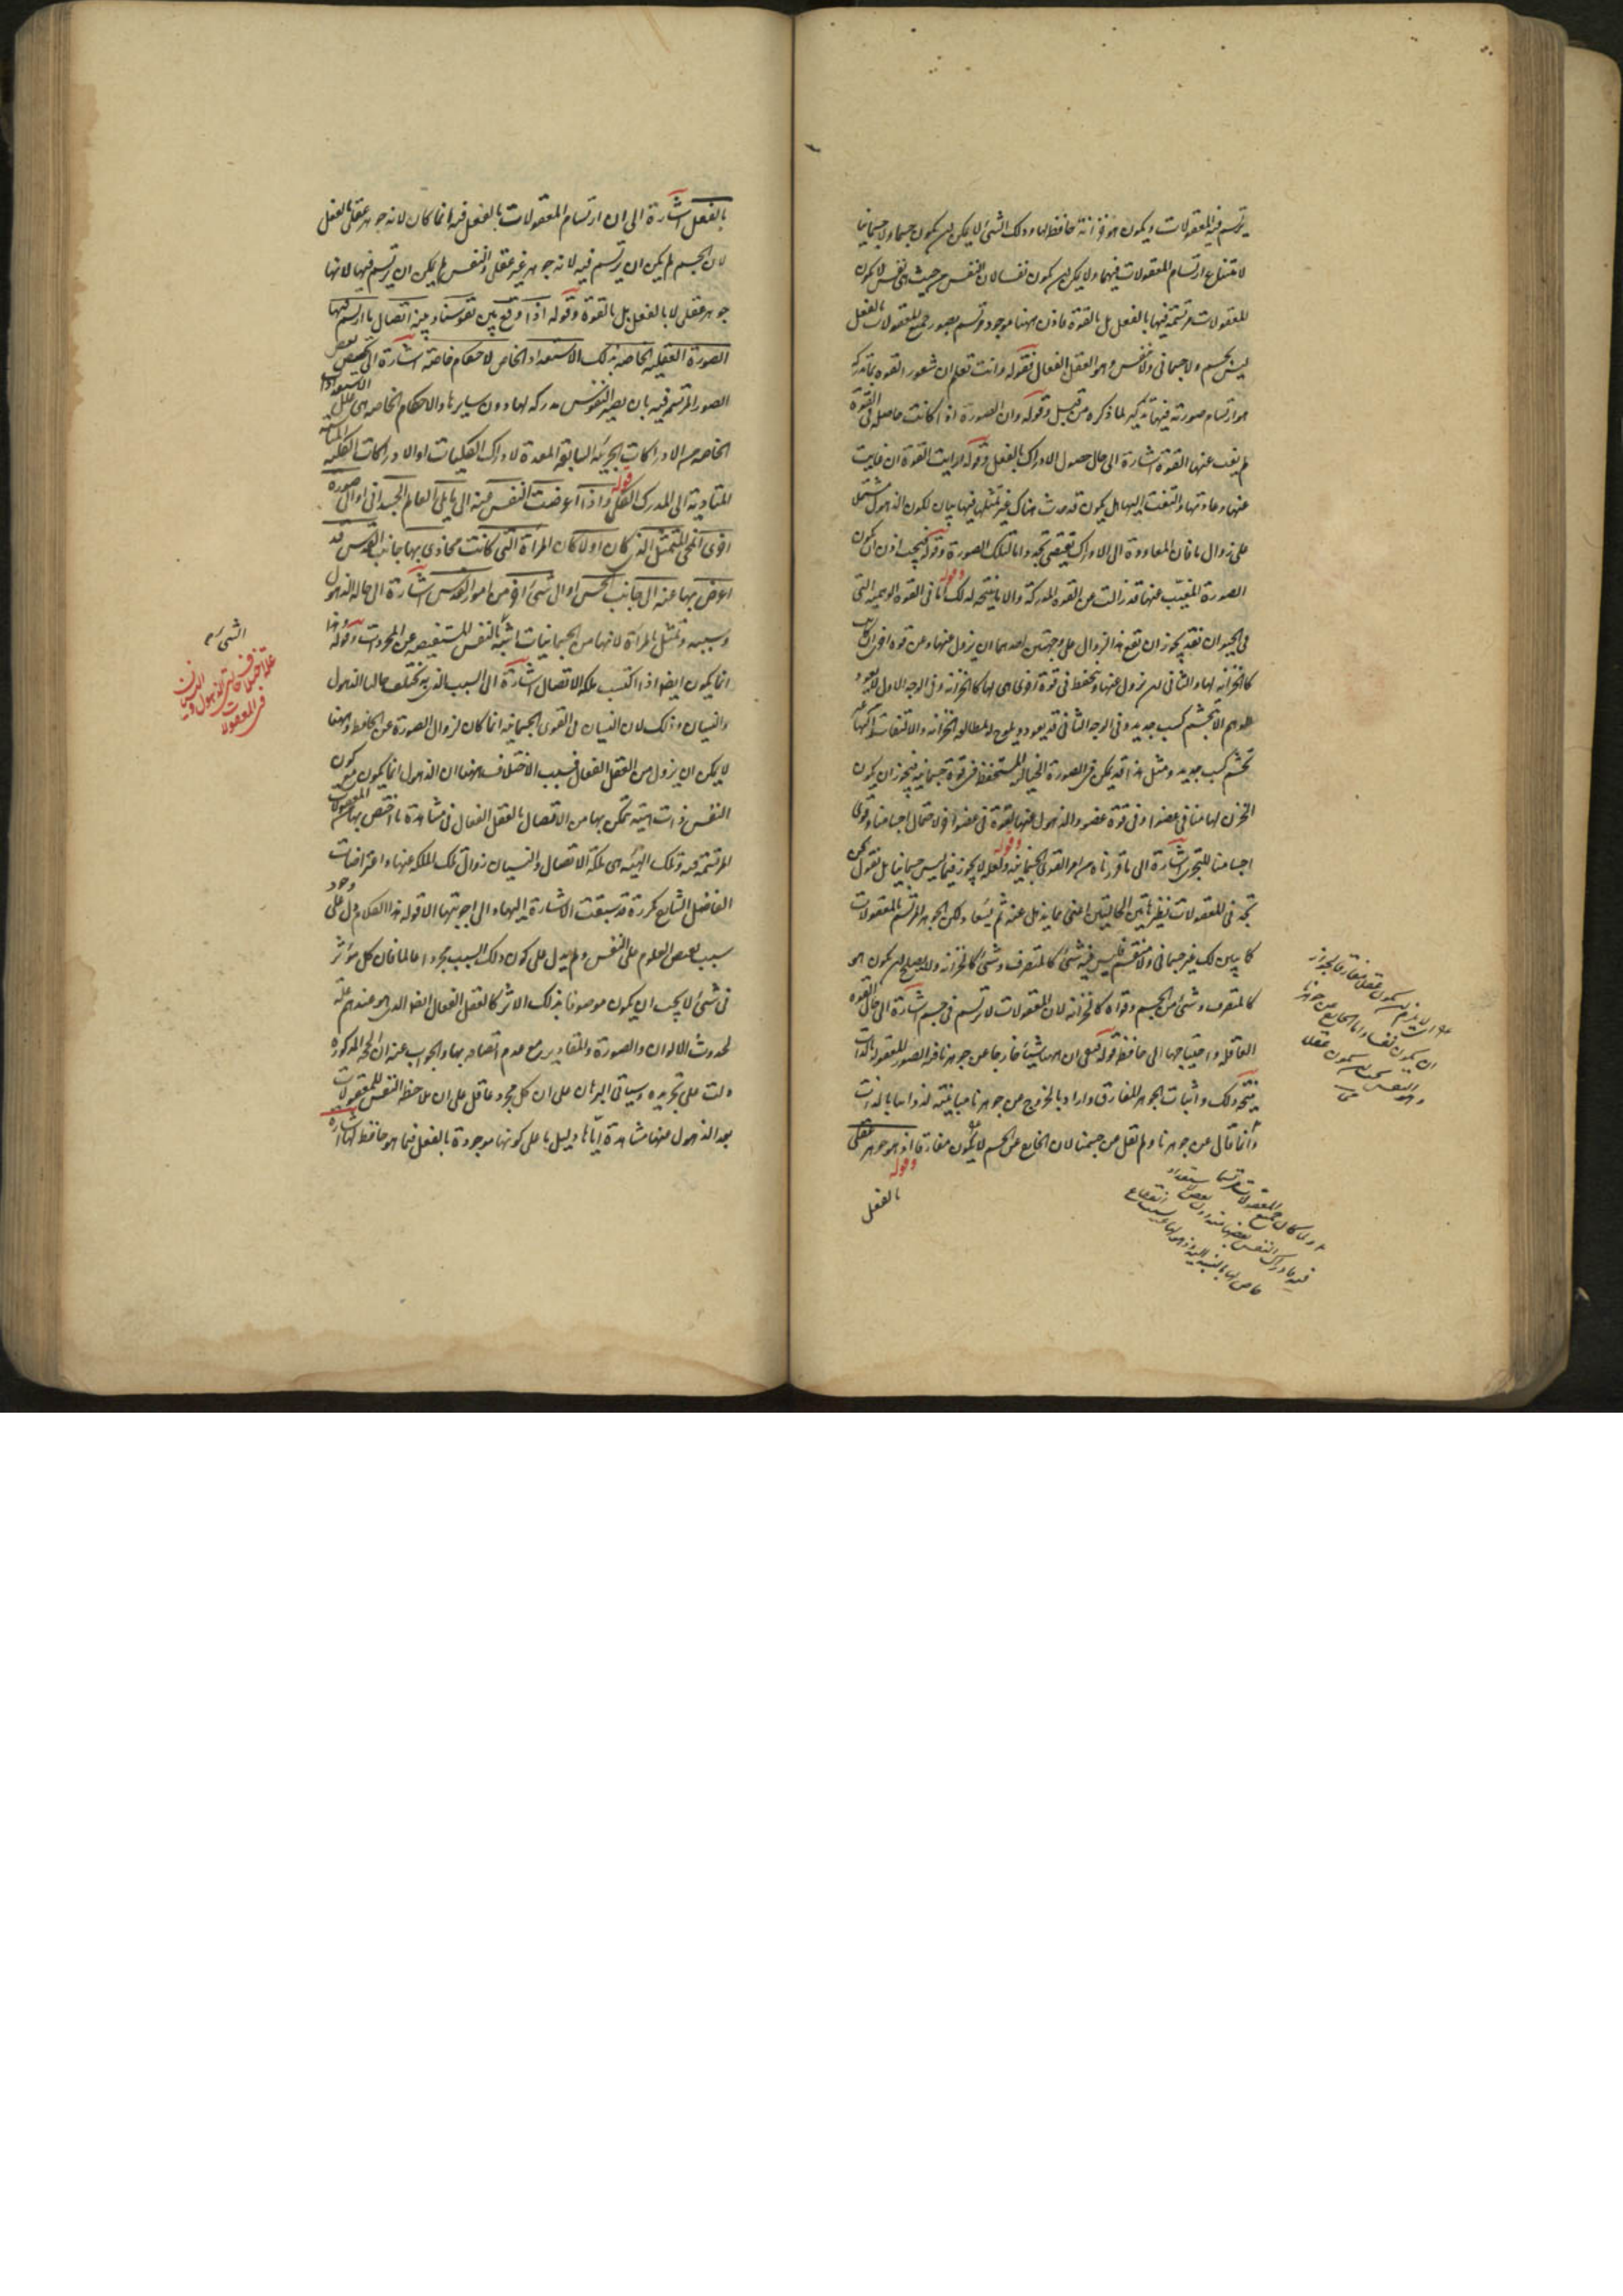 يرتسم فيه المعقولات ويكون هو خزانة حافظة لها وذلك الشئ لا يمكن ان يكون جسما ولا جسمانيا
لامتناع ارتسام المعقولات فيهما ولا يمكن ان يكون نفسا لان النفس من حيث هى نفس لا يكون
المعقولات مرتسمة فيها بالفعل بل بالقوة فاذن ههنا موجود مرتسم بصور جميع المعقولات بالفعل
ليس بجسم ولا جسمانى ولا نفس وهو العقل الفعال فقوله وانت تعلم ان شعور القوة بما تدركه
هو ارتسام صورته فيها تذكير لما ذكره من قبل وقوله وان الصورة اذا كانت حاصلة فى القوة
لم يغب عنها القوة اشارة الى حال حصول الادراك بالفعل وقوله ارايت القوة ان غابت
عنها وعاودتها والتفتت اليها هل يكون قد حدث هناك غير تمثلها فيها بيان لكون الذهول مشتملا
على زوال ما فان المعاودة الى الادراك تقتضى تجددا ما لتلك الصورة وقوله فيجب اذن ان يكون
الصورة المغيب عنها قد زالت عن القوة المدركة والا نتيجة لذلك وقوله اما فى القوة الوهمية التى
فى الحيوان فقد يجوز ان يقع هذا الزوال على وجهين احدهما ان يزول عنها وعن قوة اخرى ان كانت
كالخزانة لها والثانى ان يزول عنها وتنحفظ فى قوة اخرى هى لها كالخزانة وفى الوجه الاول لا يعود
للوهم الا بتجشم كسب جديد وفى الوجه الثانى قد يعود ويلوح له بمطالعة الخزانة والالتفات اليها من غير
تجشم كسب جديد ومثل هذا قد يمكن فى الصورة الخيالية المستحفظة فى قوة جسمانية فيجوز ان يكون
الخزن لها منا فى عضو او فى قوة عضو والذهول عنها لقوة فى عضو آخر لاحتمال اجسامنا وقوى
اجسامنا للتجزى اشارة الى ما قررناه من امر القوى الجسمانية وقوله ولعله لا يجوز فيما ليس جسمانيا بل نقول نحن
نجد فى المعقولات نظير هاتين الحالتين اعنى فيما يذهل عنه ثم يستعاد ولكن الجوهر المرتسم بالمعقولات
كما تبين لك غير جسمانى ولا منقسم فليس فيه شئ كالمتصرف وشئ كالخزانة ولا يصلح ان يكون هو
كالمتصرف وشئ من الجسم وقواه كالخزانة لان المعقولات لا ترتسم فى جسم اشارة الى حال القوة
العاقلة واحتياجها الى حافظ وقوله فبقى ان ههنا شيئا خارجا عن جوهرنا فيه الصور المعقولة بالذات
نتيجة ذلك واثبات الجوهر المفارق واراد بالخروج عن جوهرنا مباينته لذواتنا بالذات
وانما قال عن جوهرنا ولم يقل عن جسمنا لان الخارج عن الجسم لا يكون مفارقا وقوله اذ هو جوهر عقلى
بالفعل
بالفعل اشارة الى ان ارتسام المعقولات بالفعل فيه انما كان لانه جوهر عقلى بالفعل
لان الجسم لم يكن ان يرتسم فيه لانه جوهر غير عقلى والنفس لم يكن ان يرتسم فيها لانها
جوهر عقلى لا بالفعل بل بالقوة وقوله اذا وقع بين نفوسنا وبينه اتصال ما ارتسم فيها
الصورة العقلية الخاصة بذلك الاستعداد الخاص لاحكام خاصة اشارة الى تخصيص بعض
الصور المرتسمة فيه بان يصير النفوس مدركة لها دون سايرها والاحكام الخاصة هى علل الاستعدادات
الخاصة من الادراكات الجزئية السابقة المعدة لادراك الكليات او الادراكات الكلية المناسبة
المتادية الى المدرك الكلى وقوله واذا اعرضت النفس عنه الى ما يلى العالم الجسدانى او الى صورة
اخرى انمحى المتمثل الذى كان اولا كان المرآة التى كانت محاذى بها جانب القدس قد
اعرض بها عنه الى جانب الحس او الى شئ آخر من امور القدس اشارة الى حالة الذهول
وسببه وتمثل بالمرآة لانها من الجسمانيات اشبه بالنفس المستفيضة عن المجردات وقوله وهذا
انما يكون ايضا اذا اكتسب ملكة الاتصال اشارة الى السبب الذى به يختلف حالتا الذهول
والنسيان وذلك لان النسيان فى القوى الجسمانية انما كان لزوال الصورة عن الحافظ وههنا
لا يمكن ان يزول عن العقل الفعال فسبب الاختلاف ههنا ان الذهول انما يكون مع كون
النفس ذات هيئة تتمكن بها من الاتصال بالعقل الفعال فى مشاهدة ما اختص بها من المعقولات
المرتسمة فيه وتلك الهيئة هى ملكة الاتصال والنسيان زوال تلك الملكة عنها واعتراضات
الفاضل الشارح مكررة قد سبقت الاشارة اليها والى اجوبتها الا قوله هذا الكلام دل على وجود
سبب يفيض العلوم على النفس ولم يدل على كون ذلك السبب مجردا عالما فان كل مؤثر
فى شئ لا يجب ان يكون موصوفا بذلك الاثر كالعقل الفعال ايضا الذى هو عندهم علة
لحدوث الالوان والصورة والمقادير مع عدم اتصافه بها والجواب عنه ان الحجة المذكورة
دلت على تجريده وسياتى البرهان على ان كل مجرد عاقل على ان ملاحظة النفس للمعقولات
بعد الذهول عنها مشاهدة اياها دليل ما على كونها موجودة بالفعل فيما هو حافظ لها اشارة
علة اختلاف حالتى الذهول والنسيان
فى المعقولات